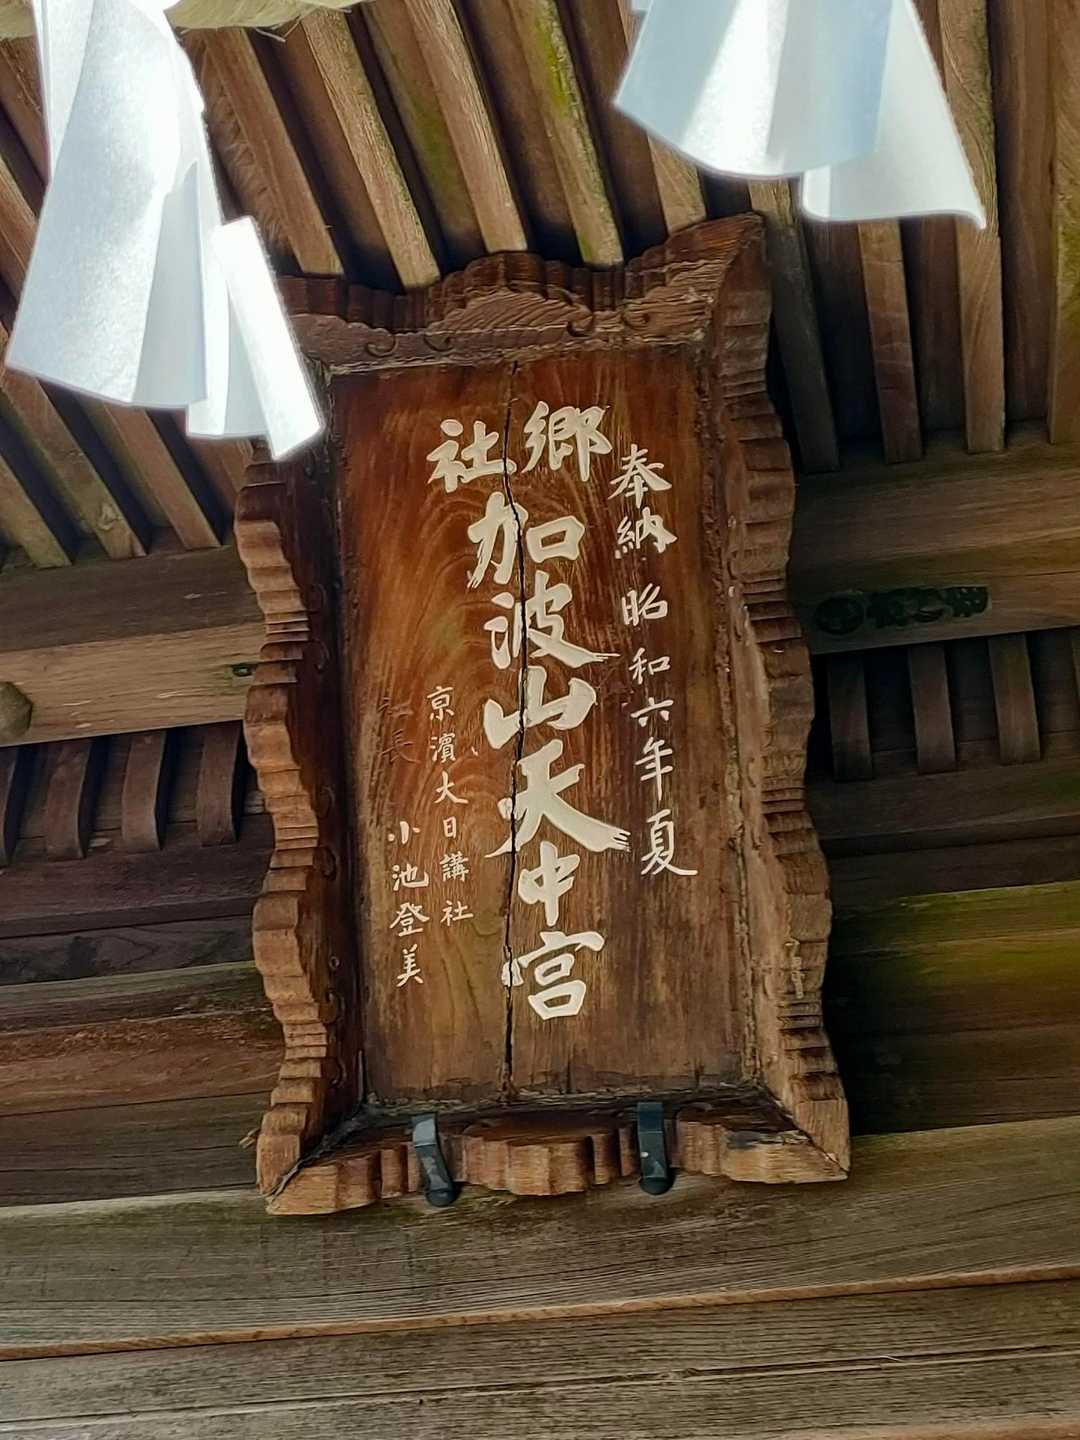 奉納 昭和六年夏
郷社
加波山天中宮
京濱大日講社
長 小池登美